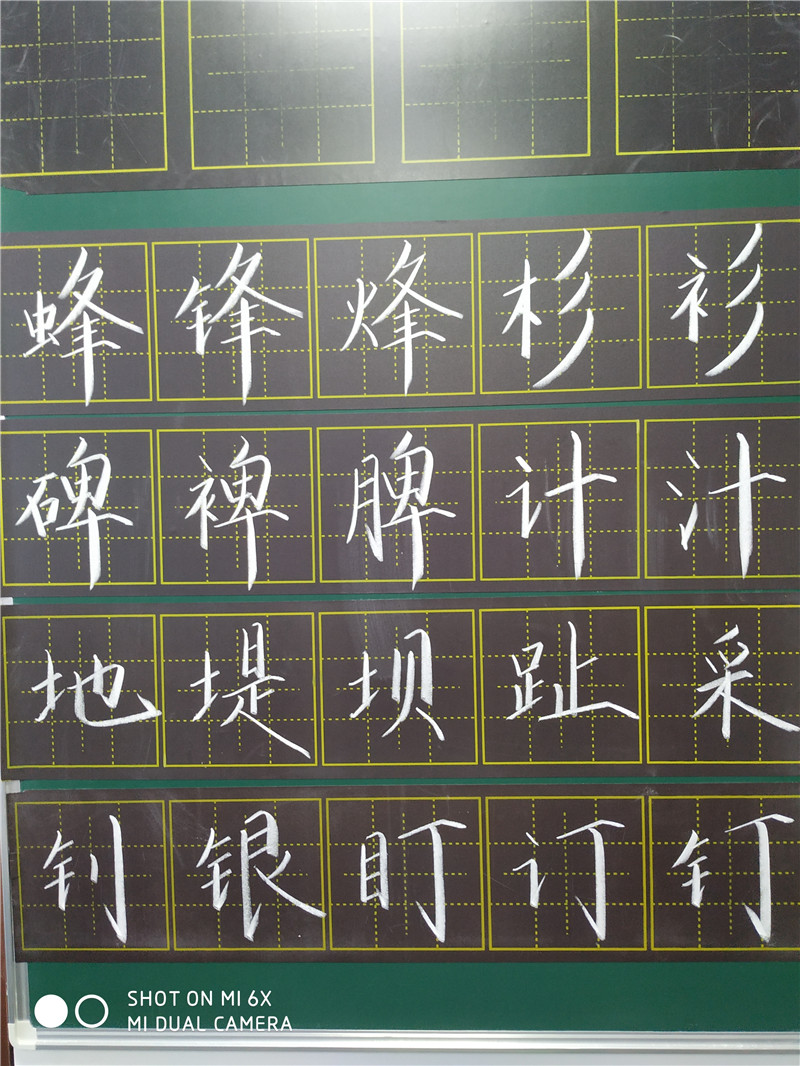 蜂锋烽杉衫
碑裨脾计汁
地堤坝趾采
钊银盯订钉
SHOT ON MI 6X
MI DUAL CAMERA